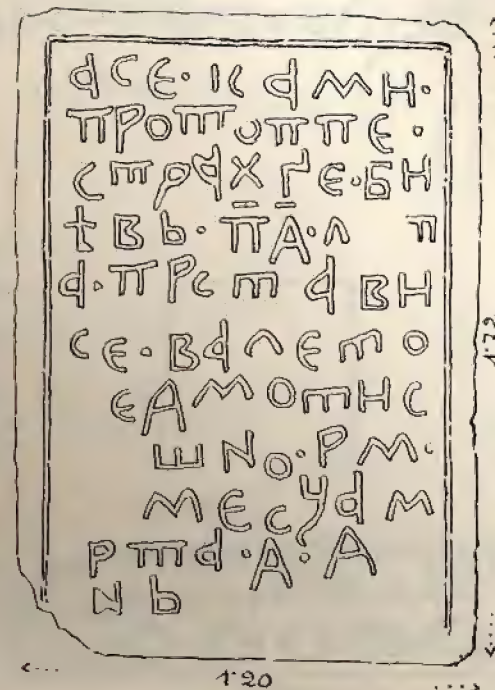 АСЕ·ІСАМН·
ПРОТОППЕ·
СТРАХГЕ·БН
ѣВЬ·П̅А̅·Л П
А·ПРСТАВН
СЕ·ВАЛЕТО
ЕАМОТНС
ШNО·РМ·
МЕСУАМ
РТА·А·А
NЬ
1'72
1'20